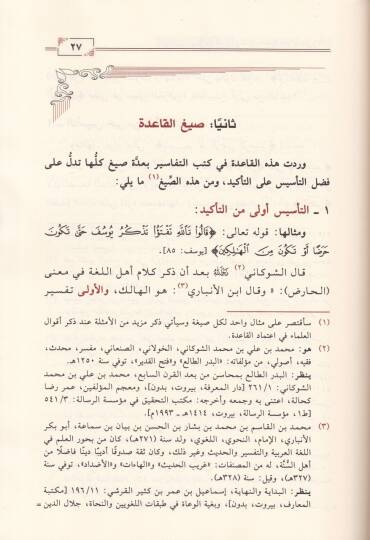 ٢٧
ثانيًا: صيغ القاعدة
وردت هذه القاعدة في كتب التفاسير بعدَّة صيغ كلُّها تدلُّ على
فضل التأسيس على التأكيد، ومن هذه الصِّيغ(١) ما يلي:
١ ـ التأسيس أولى من التأكيد:
ومثالها: قوله تعالى: ﴿قَالُوا تَاللَّهِ تَفْتَؤُا تَذْكُرُ يُوسُفَ حَتَّى تَكُونَ
حَرَضًا أَوْ تَكُونَ مِنَ الْهَالِكِينَ﴾ [يوسف: ٨٥].
قال الشوكاني(٢) رحمه الله بعد أن ذكر كلام أهل اللغة في معنى
(الحارض): «وقال ابن الأنباري(٣): هو الهالك، والأولى تفسير
(١) سأقتصر على مثال واحد لكل صيغة وسيأتي ذكر مزيد من الأمثلة عند ذكر أقوال
العلماء في اعتماد القاعدة.
(٢) هو: محمد بن علي بن محمد الشوكاني، الخولاني، الصنعاني، مفسر، محدث،
فقيه، أصولي، من مؤلفاته: «البدر الطالع» و«فتح القدير»، توفي سنة ١٢٥٠هـ.
ينظر: البدر الطالع بمحاسن من بعد القرن السابع، محمد بن علي بن محمد
الشوكاني: ٢٦١/١ [دار المعرفة، بيروت، بدون]، ومعجم المؤلفين، عمر رضا
كحالة، اعتنى به وجمعه وأخرجه: مكتب التحقيق في مؤسسة الرسالة: ٥٤١/٣
[ط١، مؤسسة الرسالة، بيروت، ١٤١٤هـ ـ ١٩٩٣م].
(٣) محمد بن القاسم بن محمد بن بشار بن الحسن بن بيان بن سماعة، أبو بكر
الأنباري، الإمام، النحوي، اللغوي، ولد سنة (٢٧١هـ)، كان من بحور العلم في
اللغة العربية والتفسير والحديث وغير ذلك، وكان ثقة صدوقًا أديبًا دينًا فاضلًا من
أهل السُّنَّة، له من المصنفات: «غريب الحديث» و«الهاءات» و«الأضداد»، توفي سنة
(٣٢٧هـ)، وقيل: سنة (٣٢٨هـ).
ينظر: البداية والنهاية، إسماعيل بن عمر بن كثير القرشي: ١٩٦/١١ [مكتبة
المعارف، بيروت، بدون]، وبغية الوعاة في طبقات اللغويين والنحاة، جلال الدين =